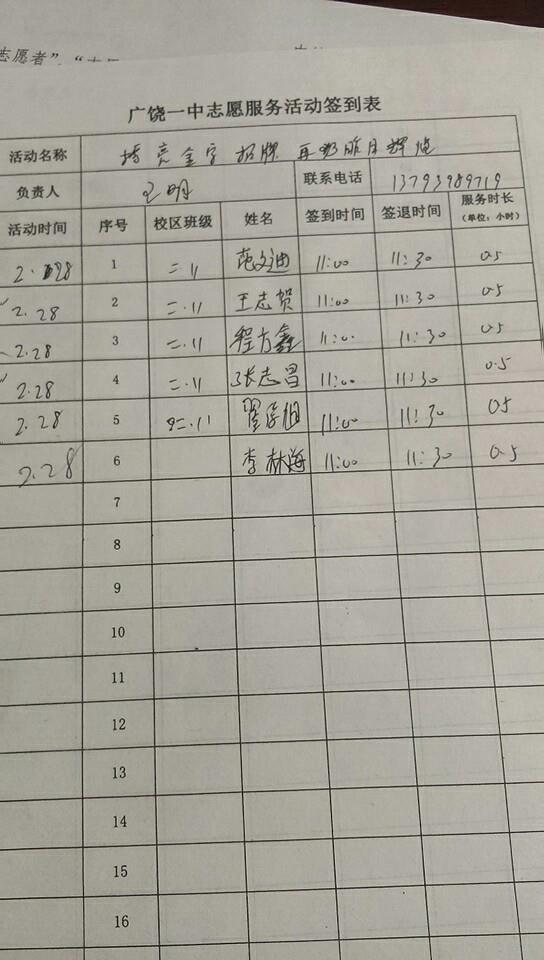 志愿者”、“
广饶一中志愿服务活动签到表
活动名称 擦亮金字招牌 再现昨日辉煌
负责人 王明 联系电话 13793989719
活动时间 序号 校区班级 姓名 签到时间 签退时间 服务时长（单位：小时）
2.28 1 二.11 范文迪 11:00 11:30 0.5
2.28 2 二.11 王志贺 11:00 11:30 0.5
2.28 3 二.11 程方鑫 11:00 11:30 0.5
2.28 4 二.11 张志昌 11:00 11:30 0.5
2.28 5 二.11 11:00 11:30 0.5
2.28 6 李林海 11:00 11:30 0.5
7
8
9
10
11
12
13
14
15
16